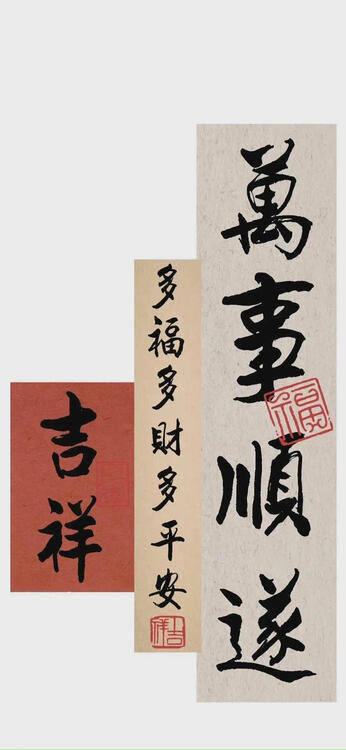 萬事順遂
福
多福多財多平安
吉祥
吉祥